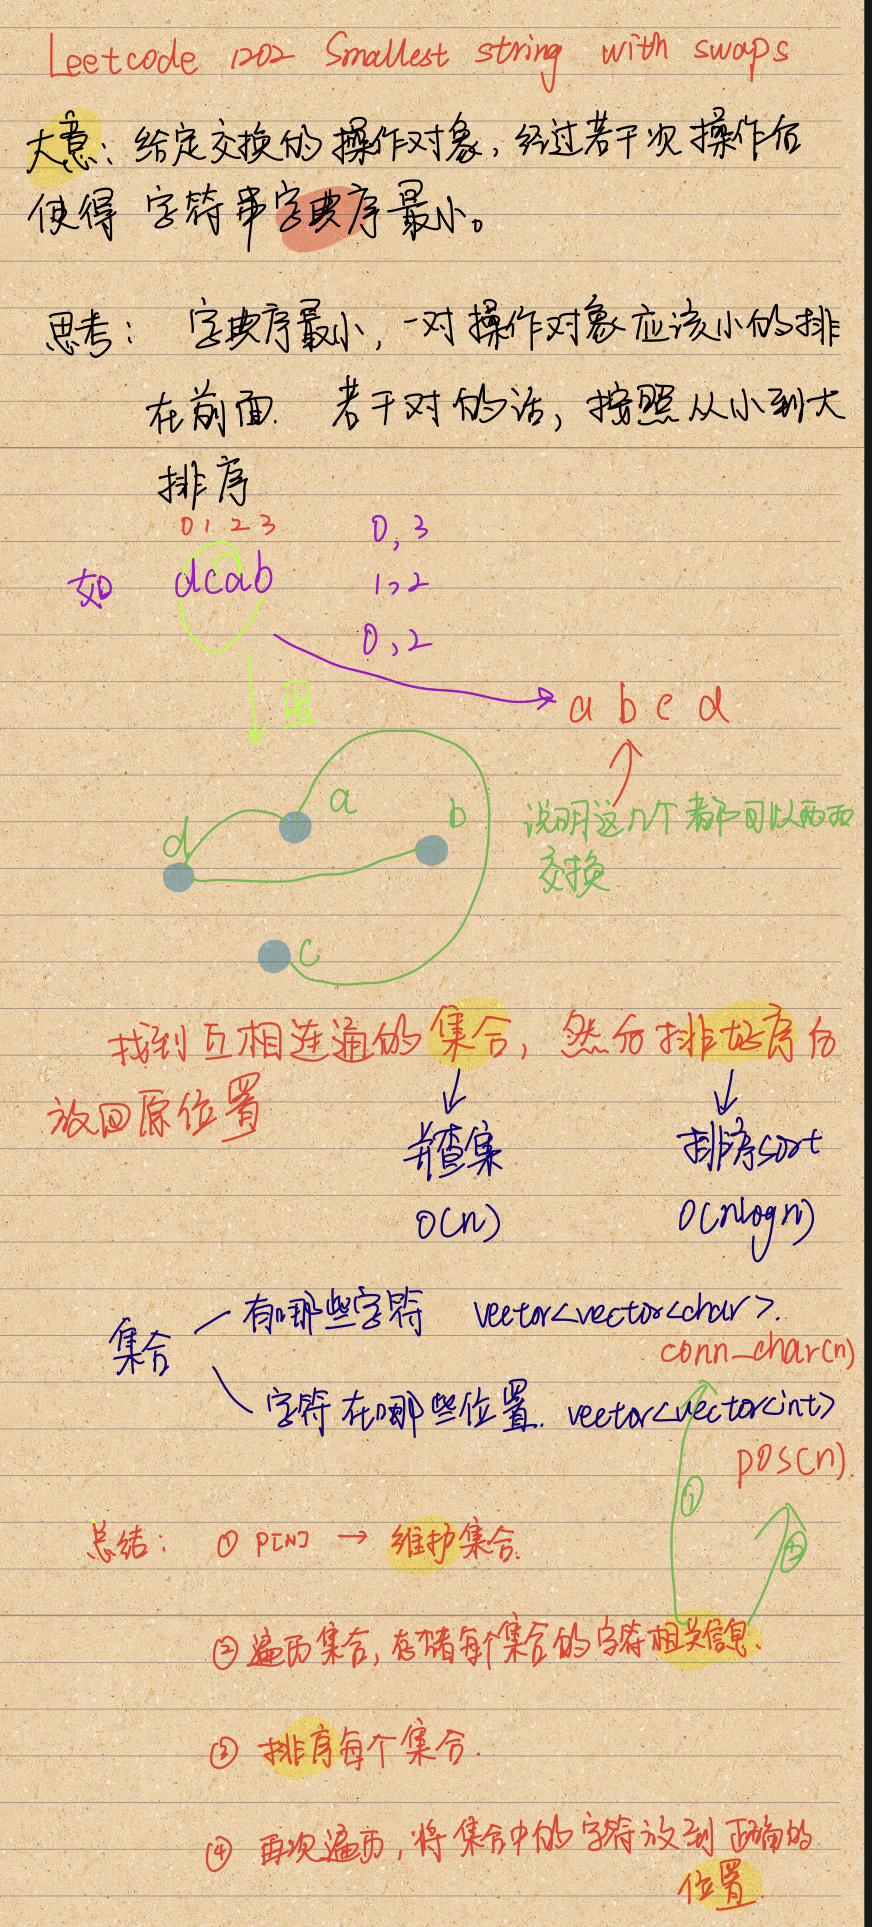 Leetcode 1202 Smallest string with swaps
大意：给定交换的操作对象，经过若干次操作后
使得 字符串字典序最小。
思考： 字典序最小，一对操作对象应该小的排
在前面. 若干对的话，按照从小到大
排序
0 1 2 3 0,3
如 dcab 1,2
0,2
图
a b c d
a
b
d
c
说明这几个都可以两两
交换
找到互相连通的集合，然后排好序后
放回原位置
并查集 排序sort
O(n) O(nlogn)
集合 有哪些字符 vector<vector<char>.
conn_char(n)
字符在哪些位置. vector<vector<int>
pos(n).
① ②
总结： ① P[N] → 维护集合.
② 遍历集合，存储每个集合的字符相关信息.
③ 排序每个集合.
④ 再次遍历，将集合中的字符放到正确的
位置.